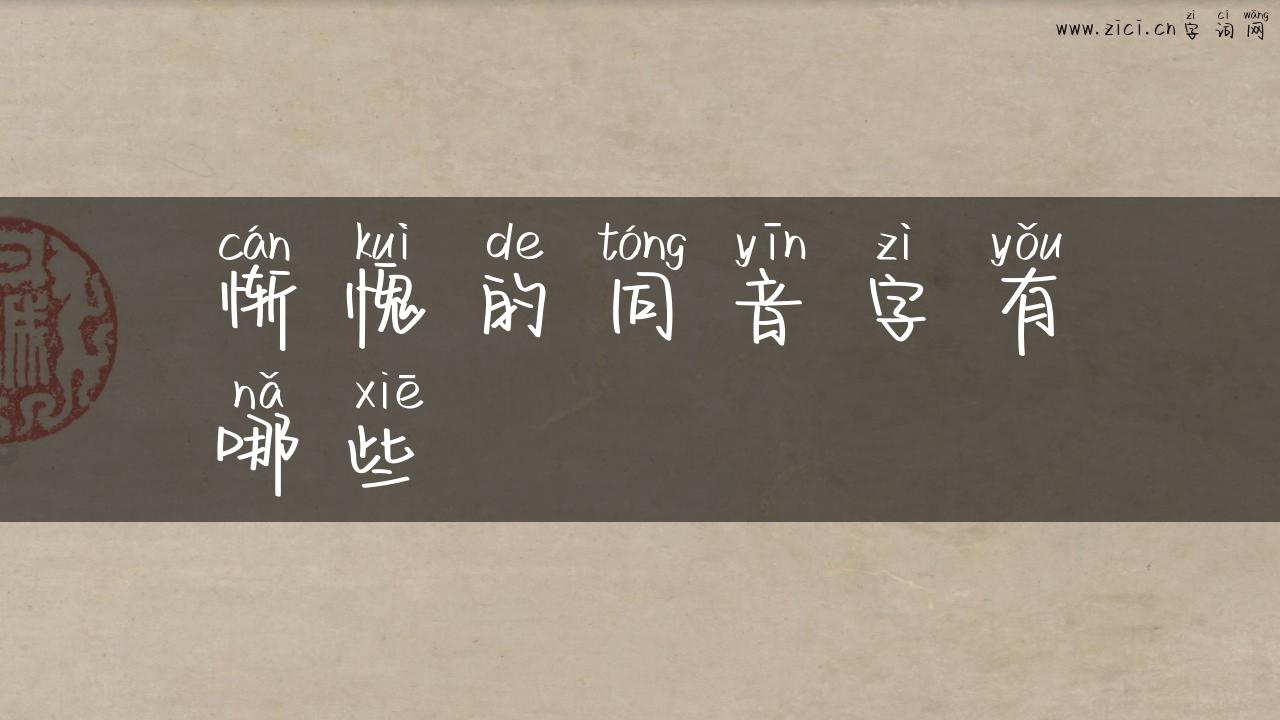 zì cí wǎng
www.zici.cn字词网
cán kuì de tóng yīn zì yǒu
惭愧的同音字有
nǎ xiē
哪些